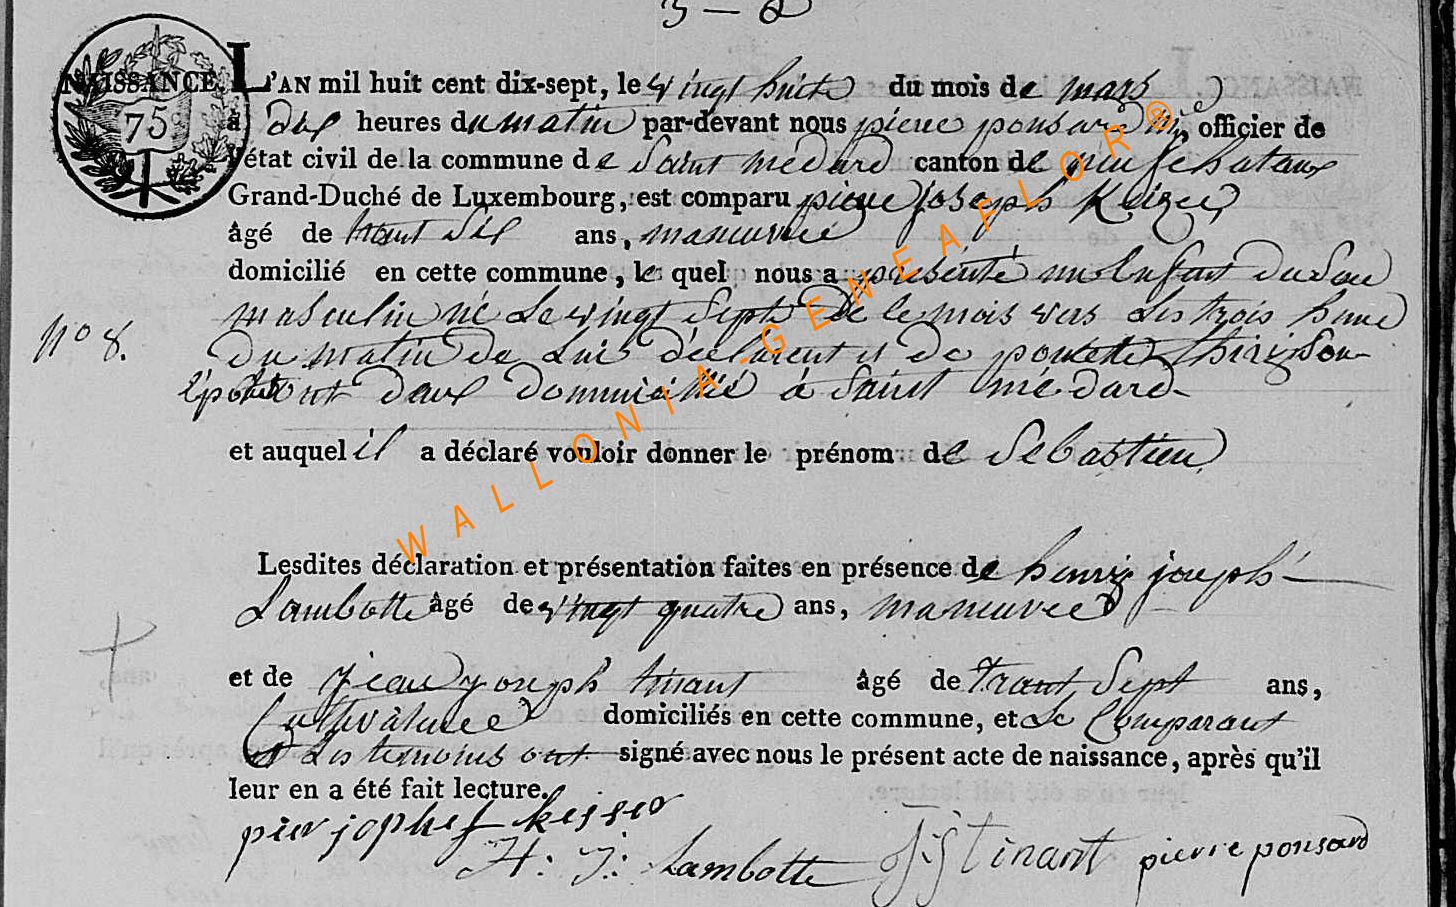 NAISSANCE.
75
L'AN mil huit cent dix-sept, le vingt huite du mois de mars
à dix heures du matin par-devant nous pierre ponsard officier de
l'état civil de la commune de Saint médard canton de neufchataux
Grand-Duché de Luxembourg, est comparu pierre joseph Keizer
âgé de trant Six ans, maneuvre
domicilié en cette commune, le quel nous a présenté un Enfant du Sexe
masculin né le vingt Sept de ce mois vers les trois heure
N° 8.
du matin de lui déclarent et de Son
Epouse tout deux domicillié à Saint médard
et auquel il a déclaré vouloir donner le prénom de Sebastien
Lesdites déclaration et présentation faites en présence de henry joseph
Lambotte âgé de vingt quatre ans, maneuvre
et de jean joseph tinant âgé de trant Sept ans,
Cultivateure domiciliés en cette commune, et le Comparant
et Les temoins ont signé avec nous le présent acte de naissance, après qu'il
leur en a été fait lecture.
pier jophef keisser
H: J: Lambotte JJ tinant pierre ponsard
WALLONIA-GENEAFLOR®